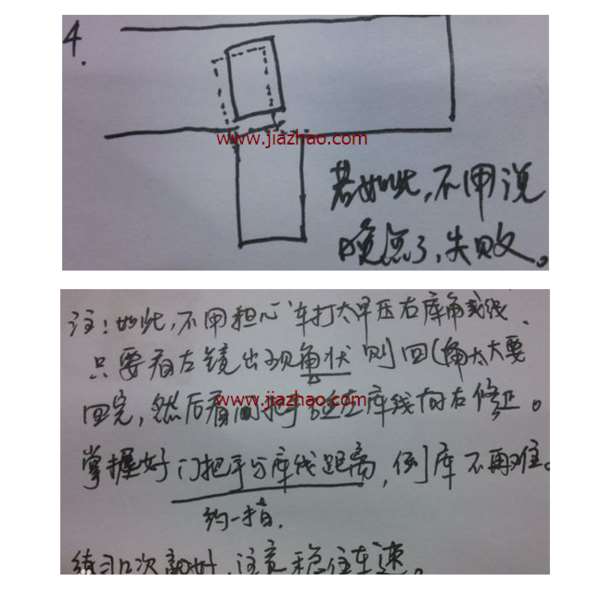 4.
www.jiazhao.com
若如此,不用说
晚怎了,失败。
注:如此,不用担心车打太早压右库角或线
只要看左镜出现角状则回(角太大要
回完,然后看 把手 左库线向右修正。
www.jiazhao.com
掌握好门把手分库线距离,倒库不再难。
约一指.
练习几次就好,注意稳住车速。